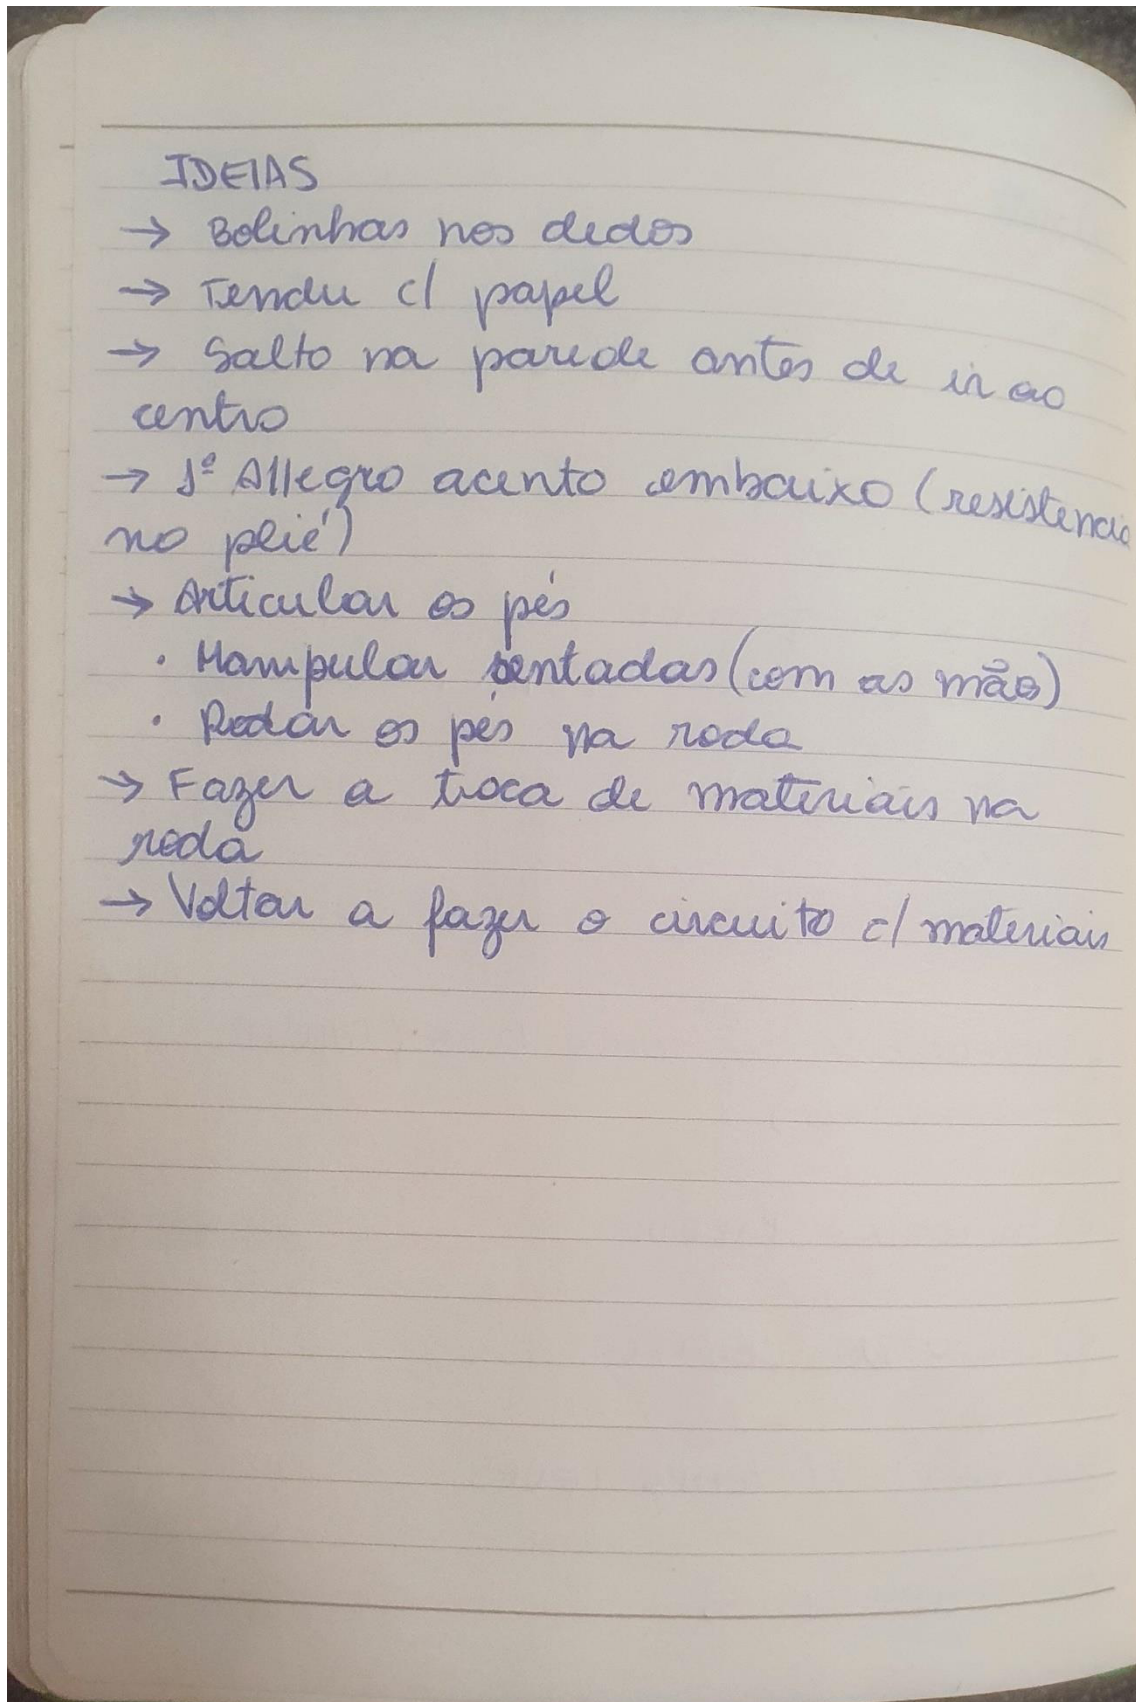 IDEIAS
→ Bolinhas nos dedos
→ Tendu c/ papel
→ Salto na parede antes de ir ao
centro
→ 1º Allegro acento embaixo (resistencia
no plié)
→ Articular os pés
· Manipular sentadas (com as mãos)
· Rodar os pés na roda
→ Fazer a troca de materiais na
roda
→ Voltar a fazer o circuito c/ materiais